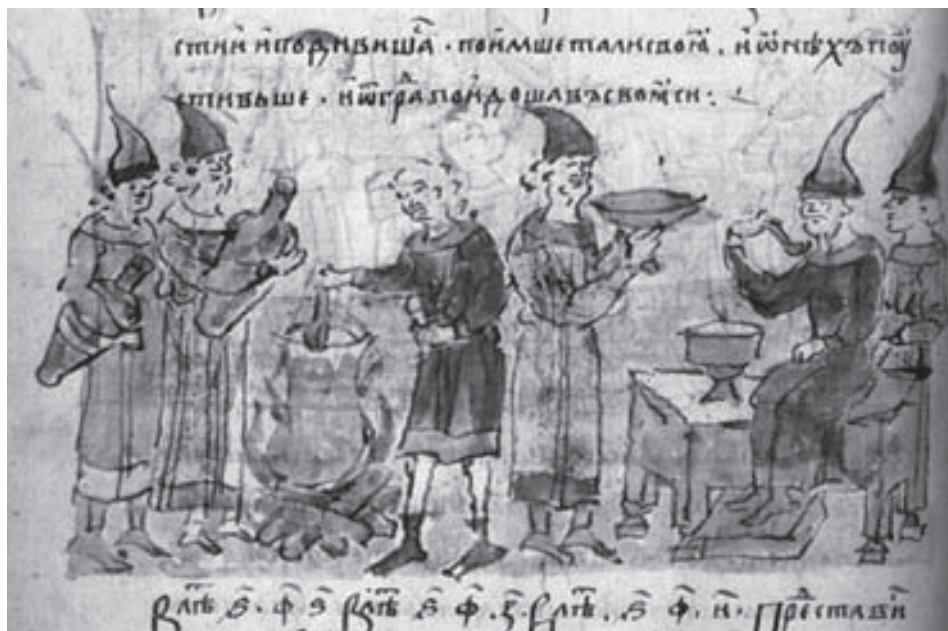 стии и подивишаⷭ҇ . поимше тали своꙗ . и ѡнѣхъ поу
стивъше . и ѿ граⷣ поидоша въ своꙗ си :
В лѣтⷪ ѕ҃ . ф҃ ѕ҃ В лѣтⷪ ѕ҃ ф҃ з҃ . В лѣтⷪ . ѕ҃ ф҃ и҃ . Преставиⷭ